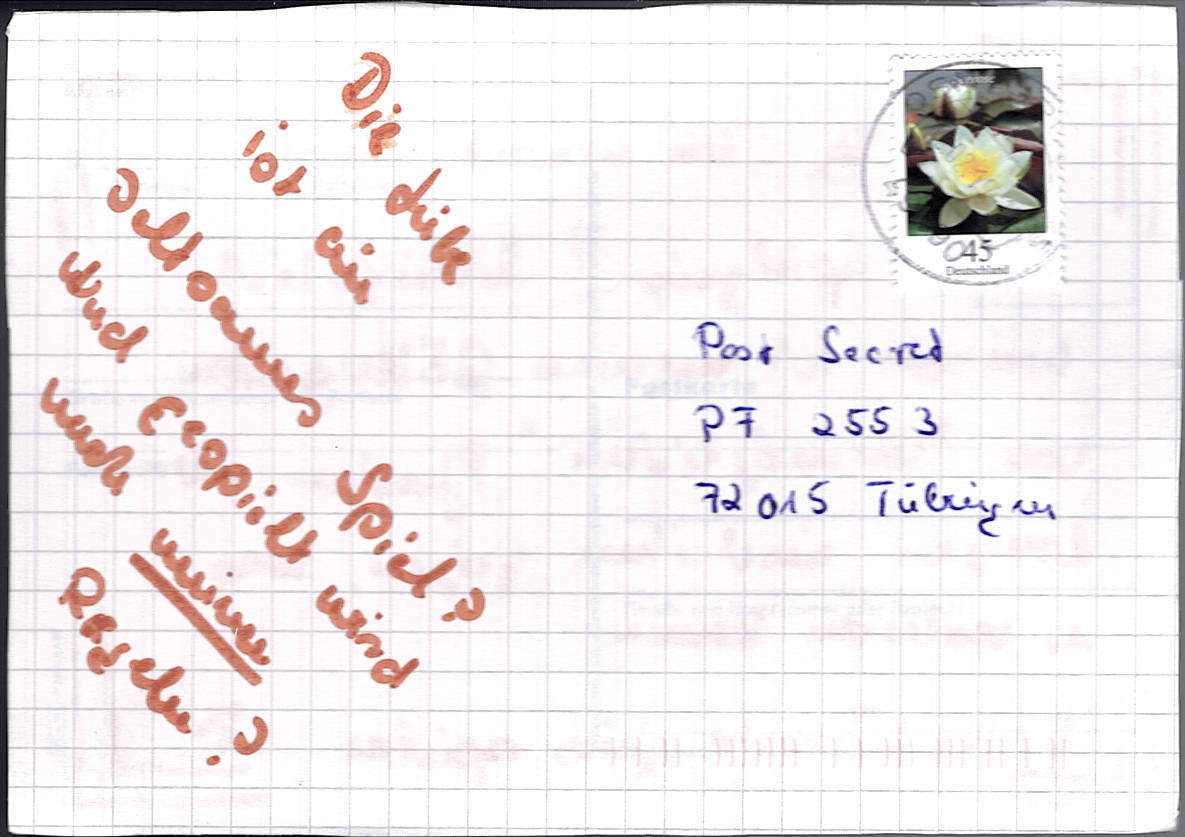 Die Liebe
ist ein
seltsames Spiel?
Und Gespielt wird
nach meinen
Regeln?
45
Deutschland
Post Secret
PF 2553
72015 Tübingen